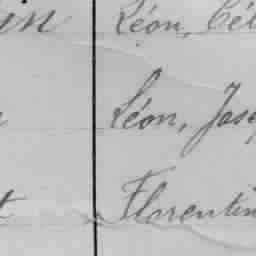 in Léon, Cél
Léon, Jose
t Florentin